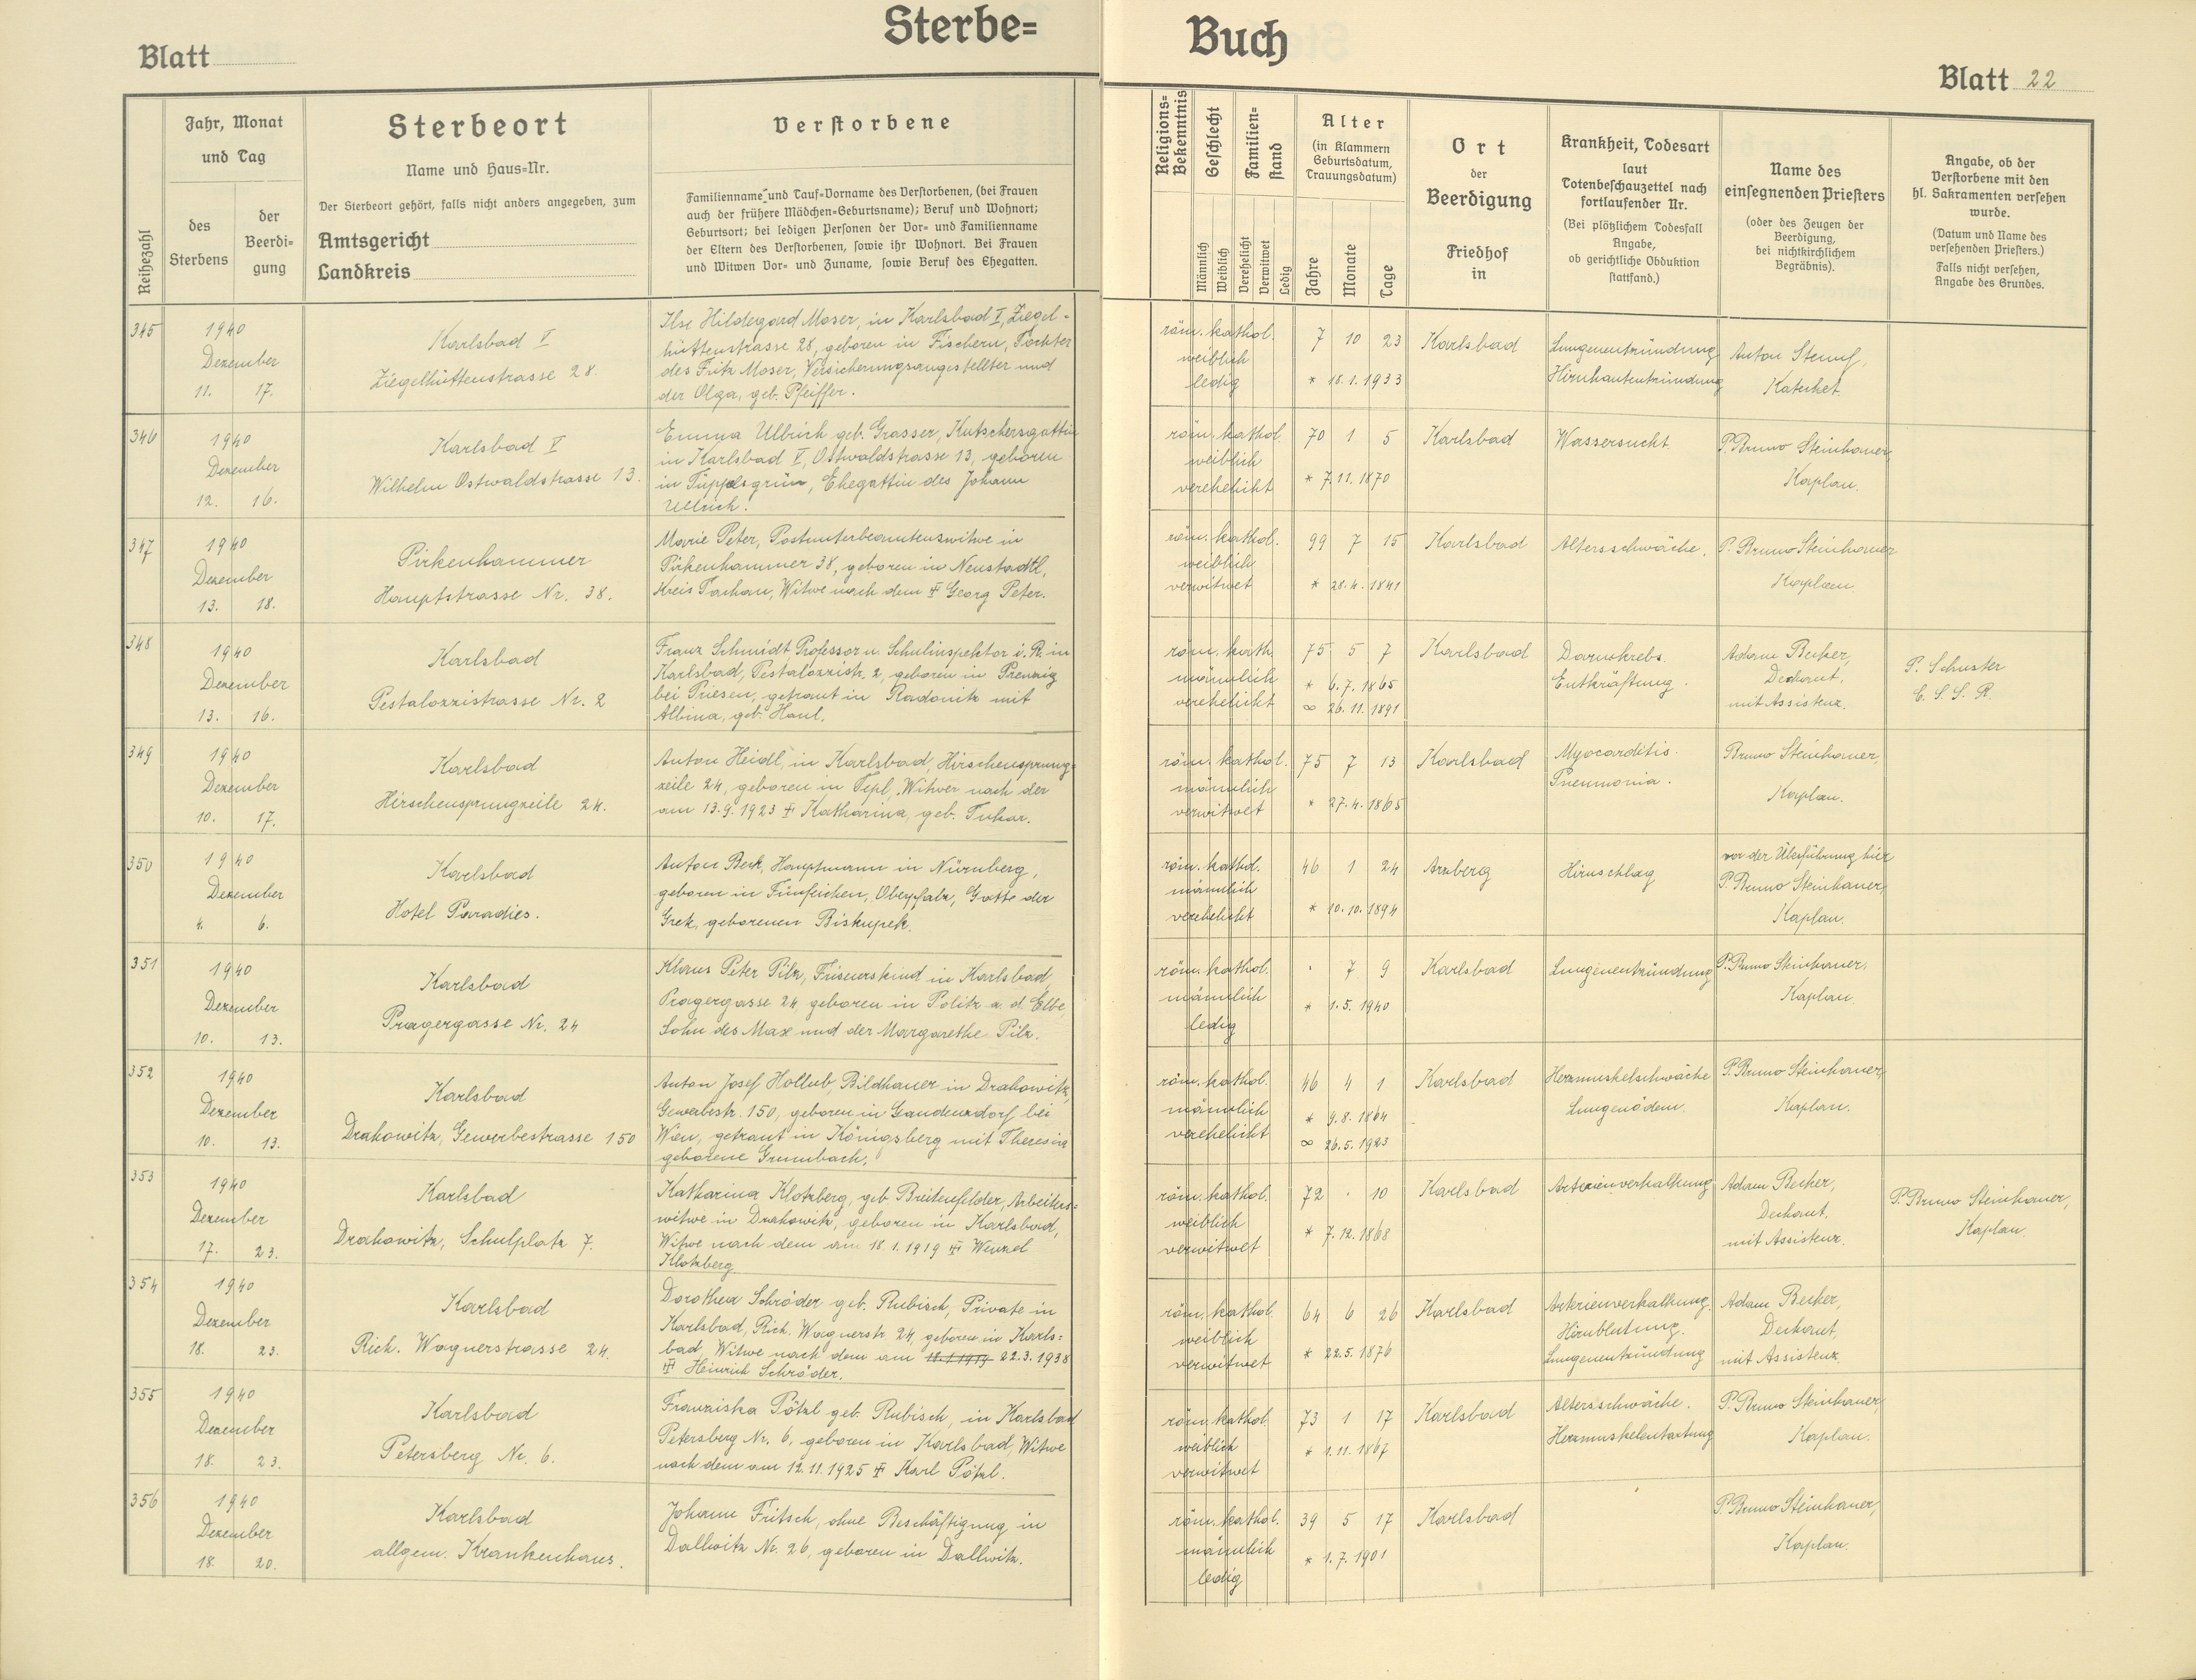 Sterbe=
Buch
Blatt
Blatt 22
Reihezahl
Jahr, Monat
und Tag
des
Sterbens
der
Beerdi-
gung
Sterbeort
Name und Haus=Nr.
Der Sterbeort gehört, falls nicht anders angegeben, zum
Amtsgericht
Landkreis
Verstorbene
Familienname und Tauf=Vorname des Verstorbenen, (bei Frauen
auch der frühere Mädchen=Geburtsname); Beruf und Wohnort;
Geburtsort; bei ledigen Personen der Vor= und Familienname
der Eltern des Verstorbenen, sowie ihr Wohnort. Bei Frauen
und Witwen Vor= und Zuname, sowie Beruf des Ehegatten.
Religions=
Bekenntnis
Geschlecht
Männlich
Weiblich
Familien=
stand
Verehelicht
Verwitwet
Ledig
Alter
(in Klammern
Geburtsdatum,
Trauungsdatum)
Jahre
Monate
Tage
Ort
der
Beerdigung
Friedhof
in
Krankheit, Todesart
laut
Totenbeschauzettel nach
fortlaufender Nr.
(Bei plötzlichem Todesfall
Angabe,
ob gerichtliche Obduktion
stattfand.)
Name des
einsegnenden Priesters
(oder des Zeugen der
Beerdigung,
bei nichtkirchlichem
Begräbnis).
Angabe, ob der
Verstorbene mit den
hl. Sakramenten versehen
wurde.
(Datum und Name des
versehenden Priesters.)
Falls nicht versehen,
Angabe des Grundes.
345
1940
Dezember
11. 17.
Karlsbad I
Ziegelhüttenstrasse 28.
Ilse Hildegard Moser, in Karlsbad I, Ziegel-
hüttenstrasse 28, geboren in Fischern, Tochter
des Fritz Moser, Versicherungsangestellter und
der Olga, geb. Pfeiffer.
röm. kathol.
weiblich
ledig
7 10 23
* 18.1.1933
Karlsbad
Lungenentzündung
Hirnhautentzündung
Anton Stumf,
Katechet.
346
1940
Dezember
12. 16.
Karlsbad V
Wilhelm Ostwaldstrasse 13.
Emma Ullrich geb. Grasser, Kutschersgattin
in Karlsbad V, Ostwaldstrasse 13, geboren
in Tüppelsgrün, Ehegattin des Johann
Ullrich.
röm. kathol
weiblich
verehelicht
70 1 5
* 7.11.1870
Karlsbad
Wassersucht.
P. Bruno Steinhauer,
Kaplan.
347
1940
Dezember
13. 18.
Pirkenhammer
Hauptstrasse Nr. 38.
Marie Peter, Postunterbeamtenswitwe in
Pirkenhammer 38, geboren in Neustadtl,
Kreis Tachau, Witwe nach dem ✝ Georg Peter.
röm. kathol.
weiblich
verwitwet
99 7 15
* 28.4.1841
Karlsbad
Altersschwäche.
P. Bruno Steinhauer
Kaplan
348
1940
Dezember
13. 16.
Karlsbad
Pestalozzistrasse Nr. 2
Franz Schmidt, Professor u. Schulinspektor i. R. in
Karlsbad, Pestalozzistr. 2, geboren in Prenzig
bei Priesen, getraut in Radonitz mit
Albina, geb. Haul.
röm. kath.
männlich
verehelicht
75 5 7
* 6.7.1865
∞ 26.11.1891
Karlsbad
Darmkrebs.
Entkräftung.
Adam Becker,
Dechant,
mit Assistenz.
P. Schuster
C. S. S. R.
349
1940
Dezember
10. 17.
Karlsbad
Hirschensprungzeile 24.
Anton Heidl, in Karlsbad, Hirschensprung=
zeile 24, geboren in Tepl, Witwer nach der
am 13.9.1923 ✝ Katharina, geb. Tuhar.
röm. kathol.
männlich
verwitwet
75 7 13
* 27.4.1865
Karlsbad
Myocarditis.
Pneumonia.
Bruno Steinhauer,
Kaplan.
350
1940
Dezember
4. 6.
Karlsbad
Hotel Paradies.
Anton Beck, Hauptmann in Nürnberg,
geboren in Fünfeichen, Oberpfalz, Gatte der
Grek, geborenen Biskupek.
röm. kathol.
männlich
verehelicht
46 1 24
* 10.10.1894
Arzberg
Hirnschlag
vor der Überführung hier
P. Bruno Steinhauer,
Kaplan.
351
1940
Dezember
10. 13.
Karlsbad
Pragergasse Nr. 24
Klaus Peter Pilz, Friseurskind in Karlsbad,
Pragergasse 24, geboren in Politz a. d. Elbe,
Sohn des Max und der Margarethe Pilz.
röm. kathol.
männlich
ledig
· 7 9
* 1.5.1940
Karlsbad
Lungenentzündung
P. Bruno Steinhauer,
Kaplan.
352
1940
Dezember
10. 13.
Karlsbad
Drahowitz, Gewerbestrasse 150
Anton Josef Hollub, Bildhauer in Drahowitz,
Gewerbestr. 150, geboren in Gaudenzdorf bei
Wien, getraut in Königsberg mit Theresia
geborene Grumbach.
röm. kathol.
männlich
verehelicht
46 4 1
* 9.8.1864
∞ 26.5.1923
Karlsbad
Herzmuskelschwäche
Lungenödem.
P. Bruno Steinhauer,
Kaplan.
353
1940
Dezember
17. 23.
Karlsbad
Drahowitz, Schulplatz 7.
Katharina Klotzberg, geb. Breitenfelder, Arbeiters=
witwe in Drahowitz, geboren in Karlsbad,
Witwe nach dem am 18.1.1919 ✝ Wenzel
Klotzberg.
röm. kathol.
weiblich
verwitwet
72 · 10
* 7.12.1868
Karlsbad
Arterienverkalkung
Adam Becker,
Dechant,
mit Assistenz.
P. Bruno Steinhauer,
Kaplan.
354
1940
Dezember
18. 23.
Karlsbad
Rich. Wagnerstrasse 24.
Dorothea Schröder geb. Rubisch, Private in
Karlsbad, Rich. Wagnerstr. 24 geboren in Karls=
bad, Witwe nach dem am 18.1.1919 22.3.1938
✝ Heinrich Schröder.
röm. kathol.
weiblich
verwitwet
64 6 26
* 22.5.1876
Karlsbad
Arterienverkalkung.
Hirnblutung.
Lungenentzündung
Adam Becker,
Dechant,
mit Assistenz
355
1940
Dezember
18. 23.
Karlsbad
Petersberg Nr. 6.
Franziska Pötzl geb. Rubisch, in Karlsbad
Petersberg Nr. 6, geboren in Karlsbad, Witwe
nach dem am 12.11.1925 ✝ Karl Pötzl.
röm. kathol
weiblich
verwitwet
73 1 17
* 1.11.1867
Karlsbad
Altersschwäche.
Herzmuskelentartung
P. Bruno Steinhauer,
Kaplan.
356
1940
Dezember
18. 20.
Karlsbad
allgem. Krankenhaus.
Johann Fritsch, ohne Beschäftigung in
Dallwitz Nr. 26, geboren in Dallwitz.
röm. kathol.
männlich
ledig
39 5 17
* 1.7.1901
Karlsbad
P. Bruno Steinhauer,
Kaplan.